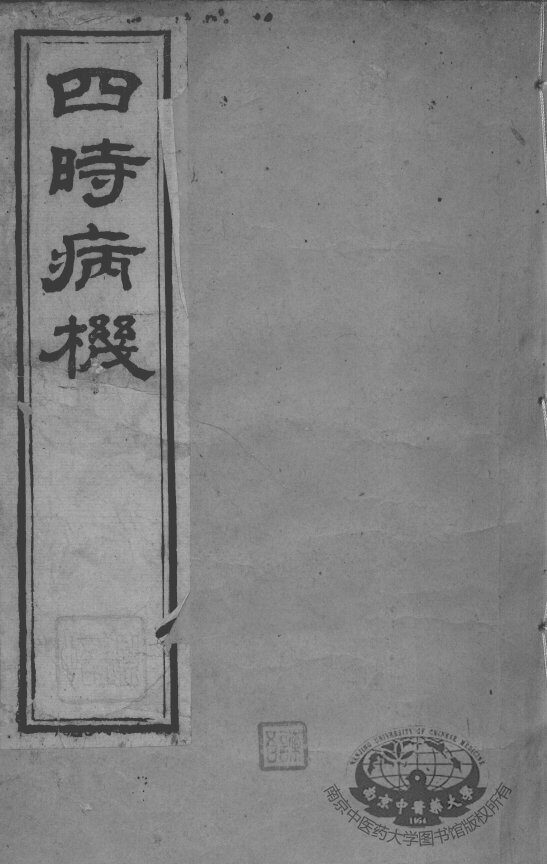 四時病機
NANJING UNIVERSITY OF CHINESE MEDICINE
南京中醫藥大學
1954
南京中医药大学图书馆版权所有